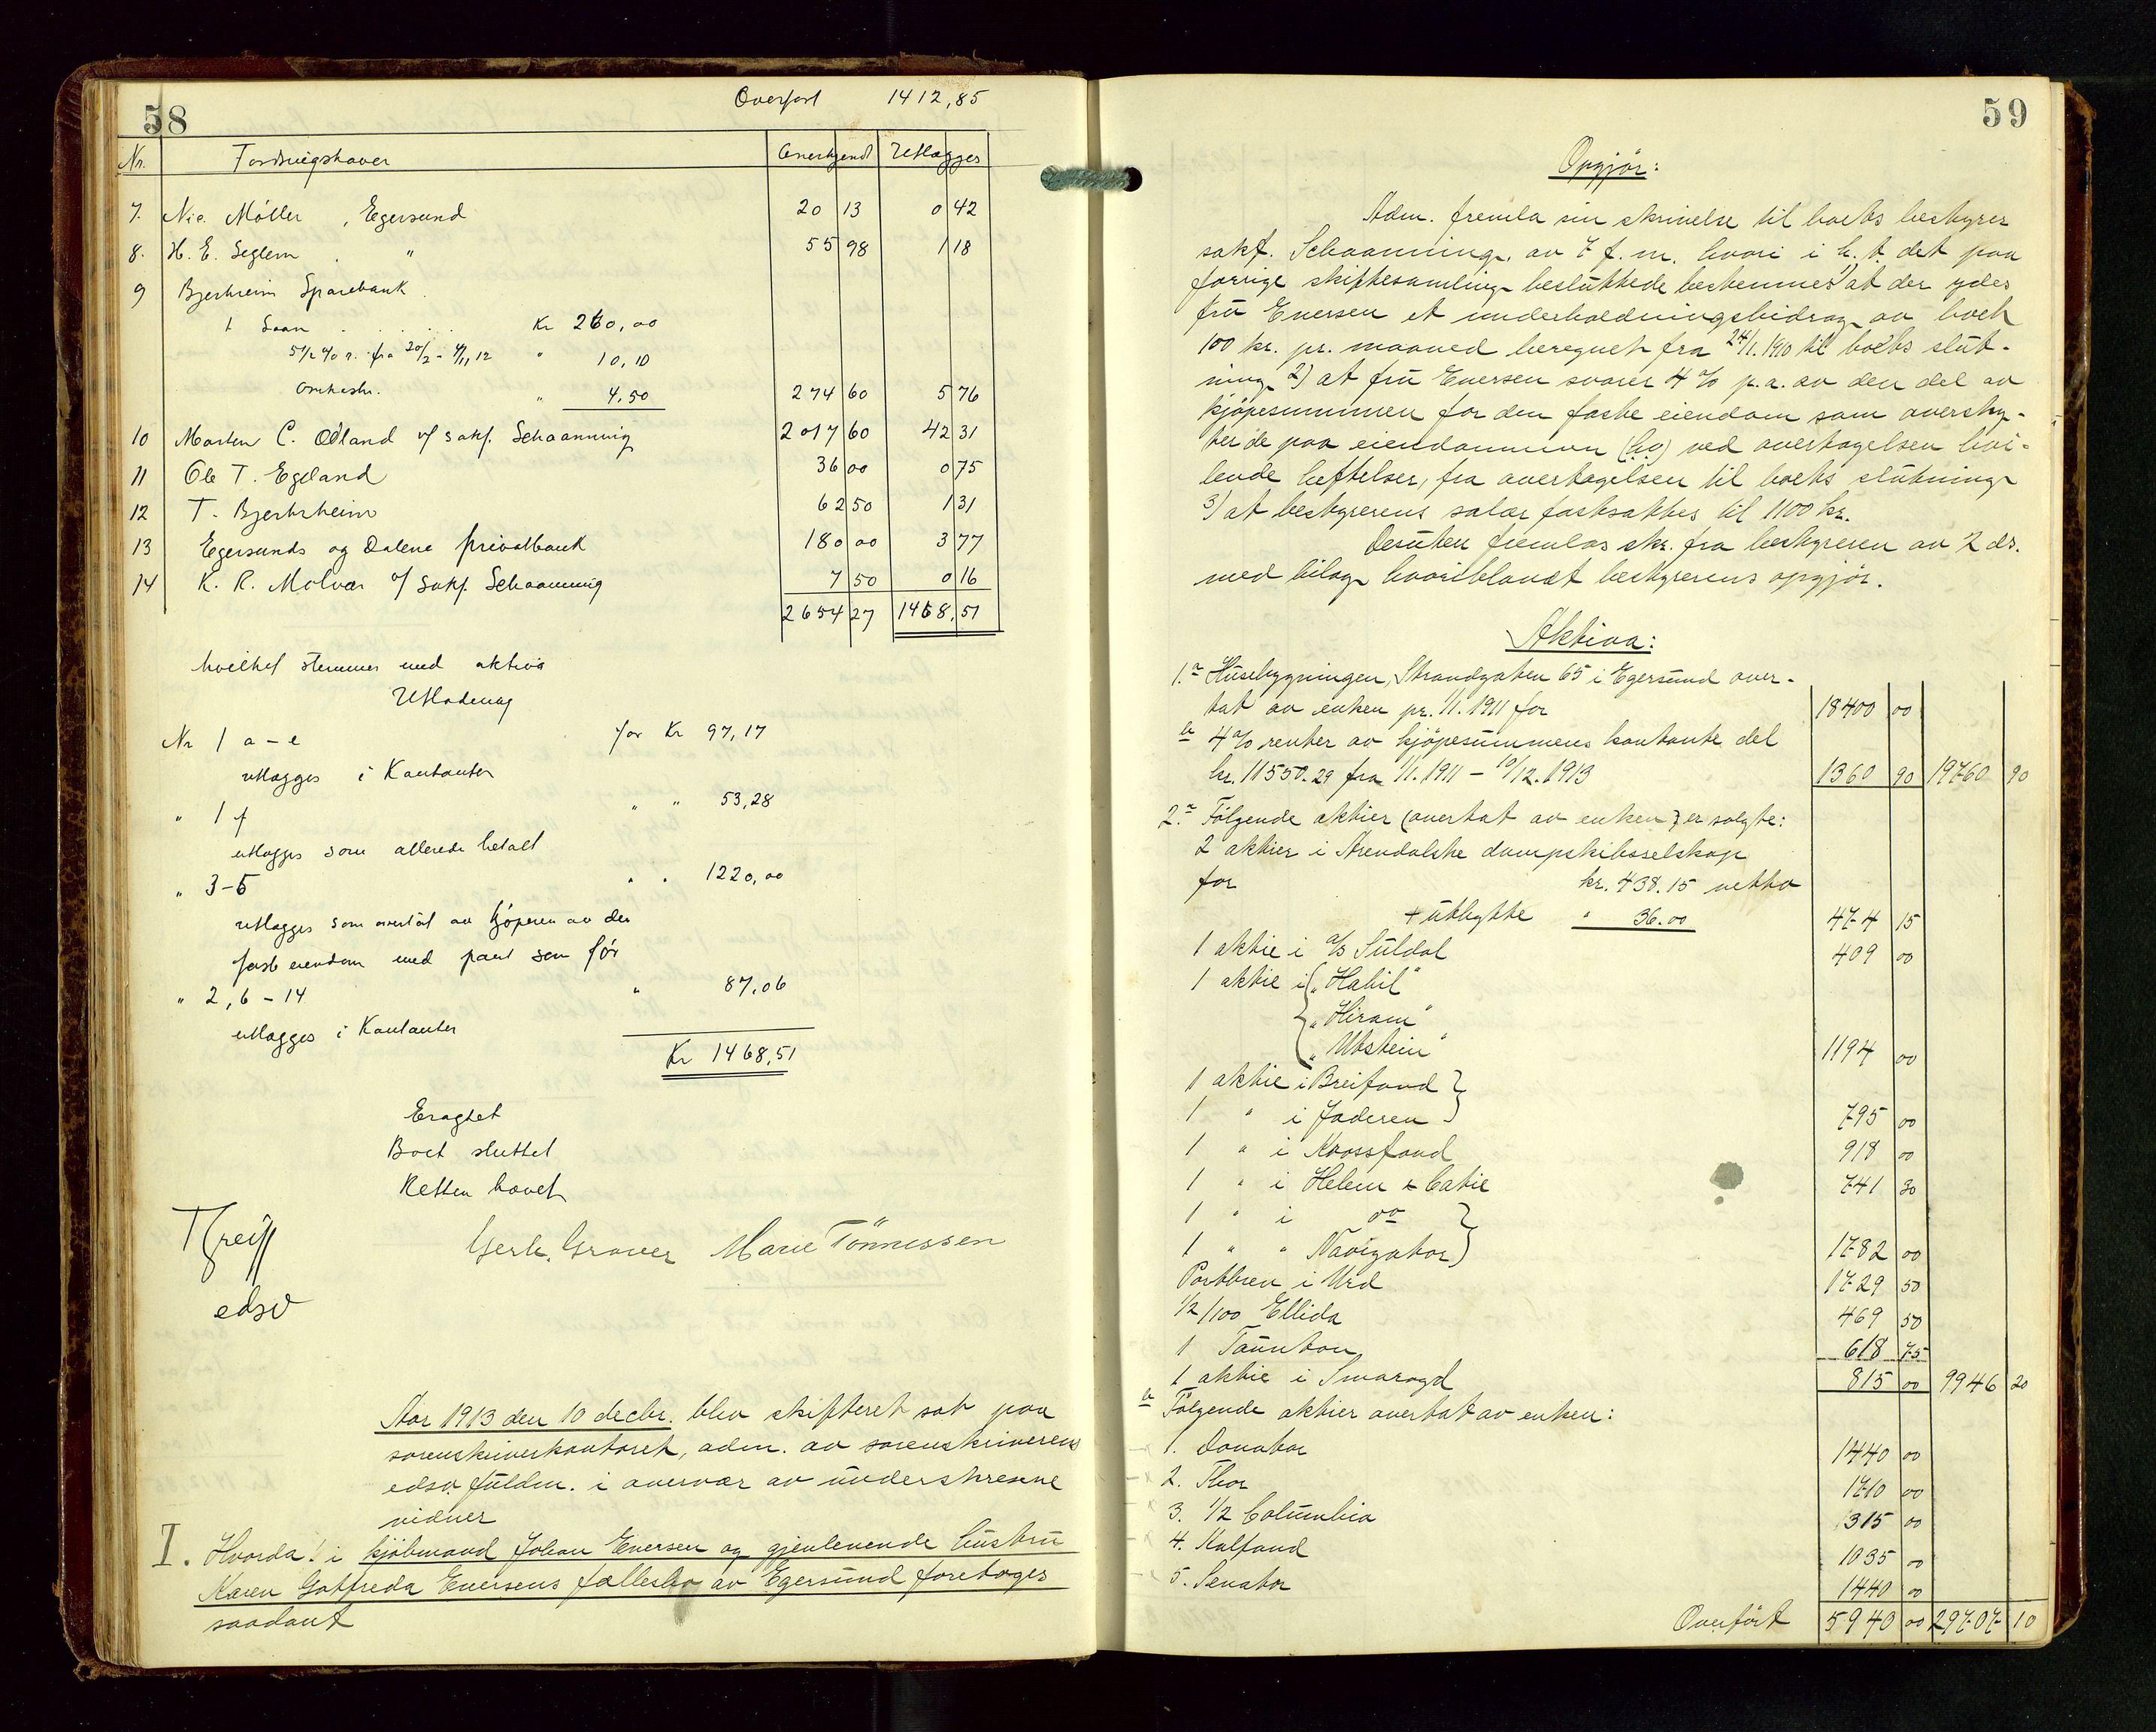 58
Overført 1412,85
Nr. Fordringshaver Anerkjendt Utlægges
7. Nic. Møller, Egersund 20 13 0 42
8. H. E. Seglem " 55 98 1 18
9 Bjerkreim Sparebank
1 Laan . . . . . Kr 260,00
5 1/2 % r. fra 20/2 - 4/11,12 " 10,10
Omkostn. " 4,50 274 60 5 76
10 Morten C. Ødland v/ sakf. Schaanning 2017 60 42 31
11 Ole T. Egeland 36 00 0 75
12 T. Bjerkreim 62 50 1 31
13 Egersunds og Dalene privatbank 180 00 3 77
14 K. R. Molvær v/ sakf. Schaanning 7 50 0 16
2654 27 1468,51
hvilket stemmer med aktiva
Utlodning
Nr 1 a - e for Kr 97,17
utlægges i Kontanter
" 1 f " " 53,28
utlægges som allerede betalt
" 3-5 " " 1220,00
utlægges som overtat av kjøperen av den
faste eiendom med pant som før
" 2, 6 - 14 " 87.06
utlægges i Kontanter
Kr 1468,51
Eragtet
Boet sluttet
Retten hævet
T Greiff Gerh. Grøver Marie Tönnessen
edsv
Aar 1913 den 10 decbr. blev skifteret sat paa
sorenskriverkontoret, adm. av sorenskriverens
edsv. fuldm. i overvær av underskrevne
vidner
I. Hvorda! i kjöbmand Johan Eversen og gjenlevende hustru
Karen Gotfreda Eversens fællesbo av Egersund foretoges
saadant
59
Opgjör:
Adm. fremla sin skrivelse til boets bestyrer
sakf. Schaanning, av 7 f. m. hvori i h. t. det paa
forrige skiftesamling besluttede bestemmes 1) at der ydes
fru Eversen et underholdningsbidrag av boet
100 kr. pr. maaned beregnet fra 24/1. 1910 til boets slut-
ning 2) at fru Eversen svarer 4 % p.a. av den del av
kjöpesummen for den faste eiendom som oversky-
ter de paa eiendommen ved overtagelsen hvi-
lende heftelser, fra overtagelsen til boets slutning
3) at bestyrerens salær fastsættes til 1100 kr.
Desuten fremlas skr. fra bestyreren av 2 ds.
med bilag hvoriblandt bestyrerens opgjör.
Aktiva:
1. a Husebygningen, Strandgaten 65 i Egersund over-
tat av enken pr. 1/1. 1911 for 18400 00
b 4 % renter av kjöpesummens kontante del
kr. 11550.29 fra 1/1. 1911 - 10/12. 1913 1360 90 19760 90
2. a Fölgende aktier (overtat av enken) er solgte:
2 aktier i Arendalske dampskibsselskap
for kr. 438.15 netto
+ utbytte " 36.00 474 15
1 aktie i a/s Suldal 409 00
1 aktie i "Habil"
"Hiram"
"Utstein" 1194 00
1 aktie i Breifond
1 " i Jæderen 795 00
1 " i Krossfond 918 00
1 " i Helem & Catie 741 30
1 " i do
1 " " Navigator 1782 00
Partbrev i Urd 1729 50
1/2/100 Ellida 469 50
1 Taunton 618 75
1 aktie i Smaragd 815 00 9946 20
b Fölgende aktier overtat av enken:
1. Donator 1440 00
2. Thor 1710 00
3. 1/2 Columbia 315 00
4. Kalfond 1035 00
5. Senator 1440 00
Overfört 5940 00 29707 10